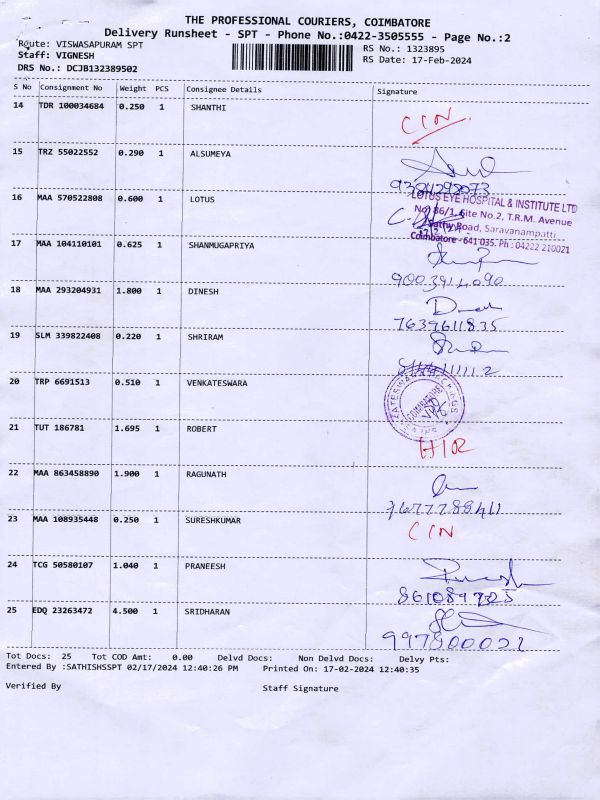 THE PROFESSIONAL COURIERS, COIMBATORE
Delivery Runsheet - SPT - Phone No.:0422-3505555 - Page No.:2
Route: VISWASAPURAM SPT
RS No.: 1323895
Staff: VIGNESH
RS Date: 17-Feb-2024
DRS No.: DCJB132389502
S No Consignment No Weight PCS Consignee Details Signature
14 TDR 100034684 0.250 1 SHANTHI CIN
15 TRZ 55022552 0.290 1 ALSUMEYA
9384298073
16 MAA 570522808 0.600 1 LOTUS
LOTUS EYE HOSPITAL & INSTITUTE LTD
No. 86/1, Site No.2, T.R.M. Avenue
Sathy Road, Saravanampatti,
Coimbatore - 641 035. Ph : 04222 210021
17 MAA 104110101 0.625 1 SHANMUGAPRIYA
9003914090
18 MAA 293204931 1.800 1 DINESH
7639611835
19 SLM 339822408 0.220 1 SHRIRAM
20 TRP 6691513 0.510 1 VENKATESWARA
COIMBATORE
21 TUT 186781 1.695 1 ROBERT
22 MAA 863458890 1.900 1 RAGUNATH
7677788411
23 MAA 108935448 0.250 1 SURESHKUMAR CIN
24 TCG 50580107 1.040 1 PRANEESH
25 EDQ 23263472 4.500 1 SRIDHARAN
Tot Docs: 25 Tot COD Amt: 0.00 Delvd Docs: Non Delvd Docs: Delvy Pts:
Entered By :SATHISHSSPT 02/17/2024 12:40:26 PM Printed On: 17-02-2024 12:40:35
Verified By Staff Signature